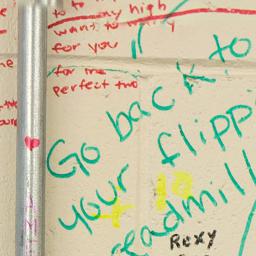 to to any high
want to marry
for you
for me
perfect two
Go back to
your flipp
eadmill
+ 10
Roxy